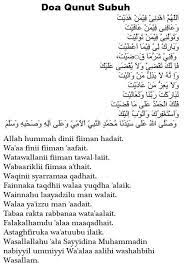 Doa Qunut Subuh
اللَّهُمَّ اهْدِنِيْ فِيْمَنْ هَدَيْتَ
وَعَافِنِيْ فِيْمَنْ عَافَيْتَ
وَتَوَلَّنِيْ فِيْمَنْ تَوَلَّيْتَ
وَبَارِكْ لِيْ فِيْمَا أَعْطَيْتَ
وَقِنِيْ شَرَّمَا قَضَيْتَ،
فَإِنَّكَ تَقْضِيْ وَلاَ يُقْضَى عَلَيْكَ
وَ إِنَّهُ لاَ يَذِلُّ مَنْ وَالَيْتَ
وَلاَ يَعِزُّ مَنْ عَادَيْتَ
تَبَارَكْتَ رَبَّنَا وَتَعَالَيْتَ
فَلَكَ الْحَمْدُ عَلَى مَا قَضَيْتَ
وَأَسْتَغْفِرُكَ وَأَتُوْبُ إِلَيْكَ
وَصَلَّى اللهُ عَلَى سَيِّدِنَا مُحَمَّدٍ النَّبِيِّ اْلأُمِّيِّ وَعَلَى آلِهِ وَصَحْبِهِ وَسَلَّمَ
Allah hummah dinii fiiman hadait.
Wa'aa finii fiiman 'aafait.
Watawallanii fiiman tawal laiit.
Wabaariklii fiimaa a'thait.
Waqinii syarramaa qadhait.
Fainnaka taqdhii walaa yuqdha 'alaik.
Wainnahu laayadzilu man walait.
Walaa ya'izzu man 'aadait.
Tabaa rakta rabbanaa wata'aalait.
Falakalhamdu 'alaa maaqadhait.
Astaghfiruka wa'atuubu ilaik.
Wasallallahu 'ala Sayyidina Muhammadin
nabiyyil ummiyyi Wa'alaa aalihi washahbihi
Wasallam.